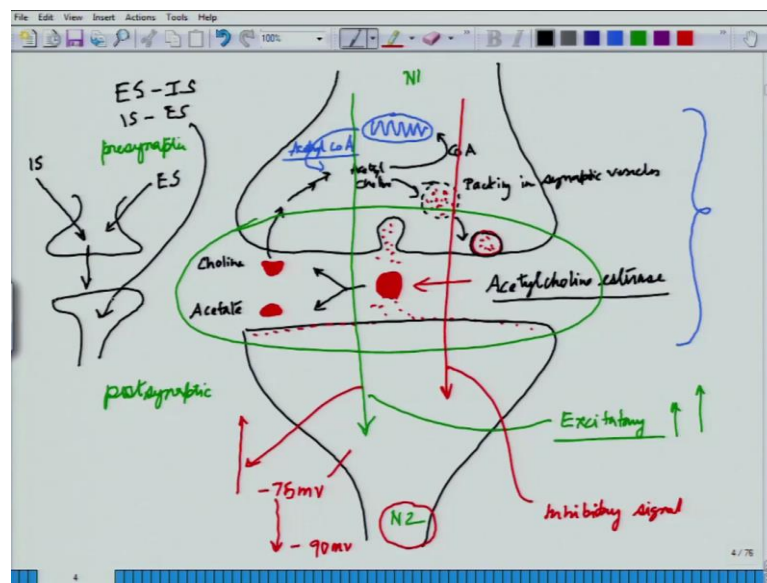 File Edit View Insert Actions Tools Help
100%
B I
N1
ES-IS
IS-ES
presynaptic
IS
ES
Acetyl CoA
CoA
Acetyl
Choline
Packing in synaptic vesicles
Choline
Acetate
Acetylcholine esterase
postsynaptic
Excitatory
-75mv
-90mv
N2
Inhibitory signal
4/76
4